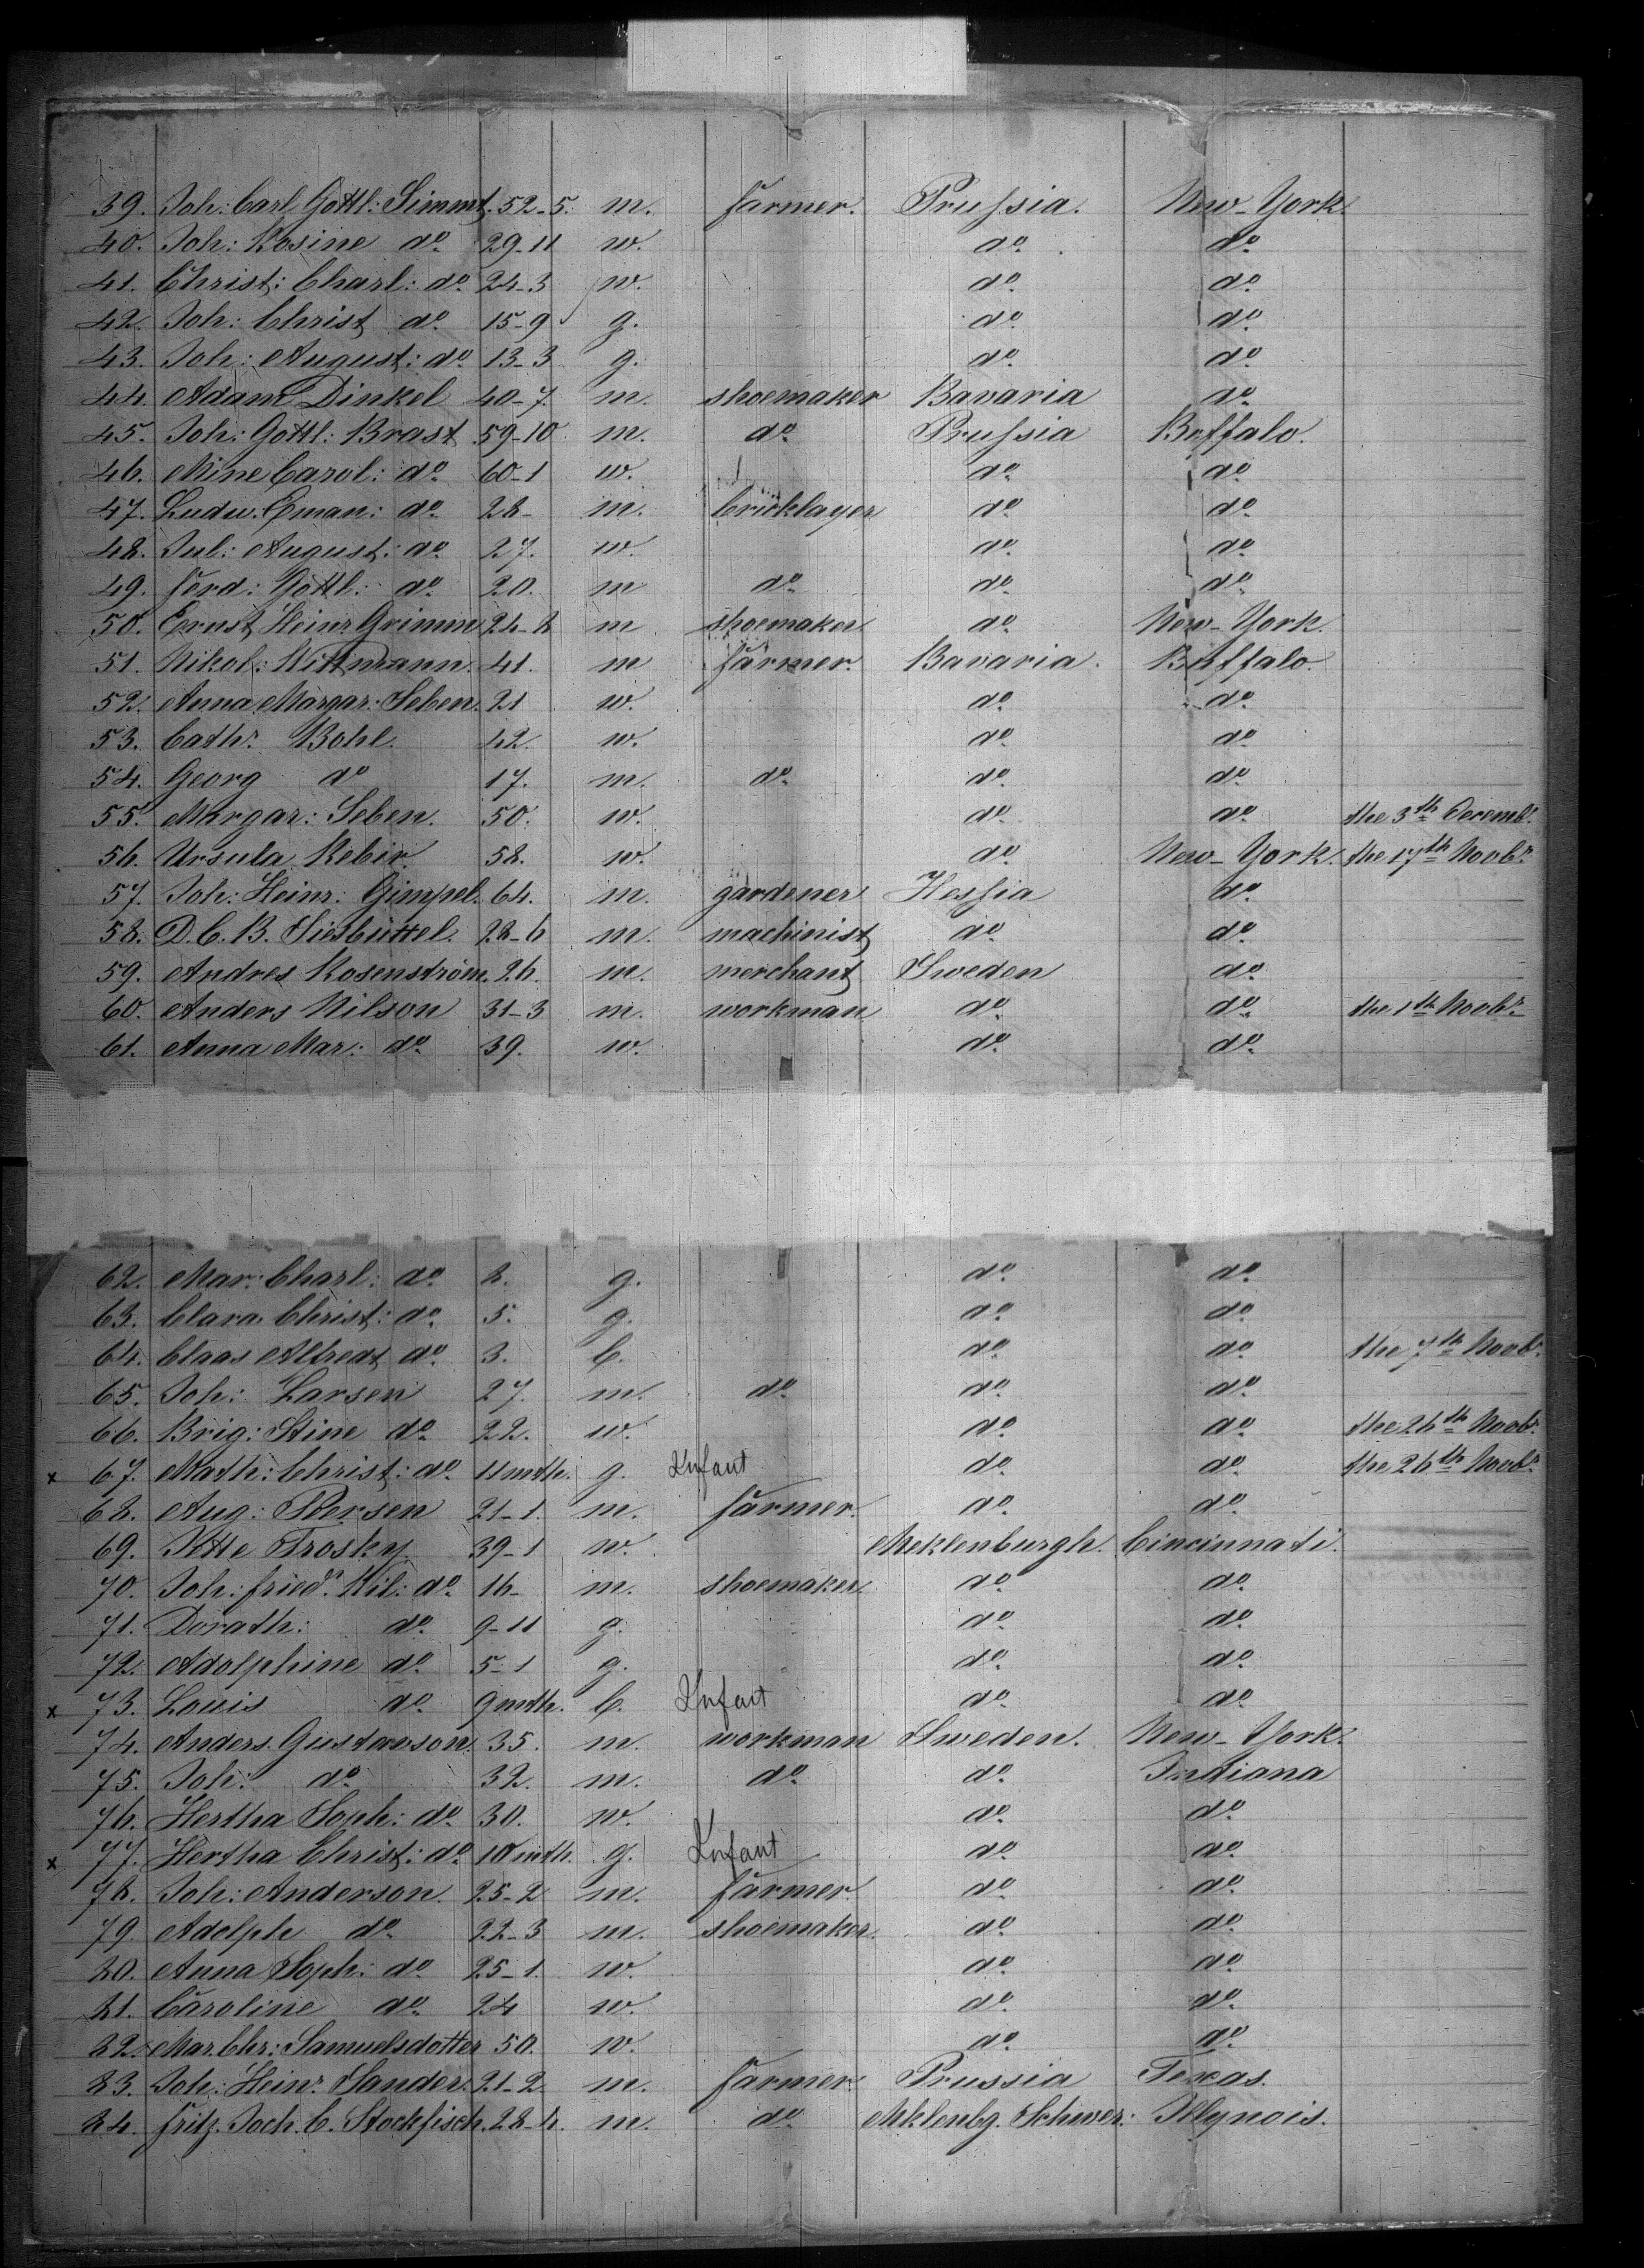 39. Joh: Carl Gottl: Simmt. 52-5. m. farmer. Prussia. New-York.
40. Joh: Rosine do. 29-11 w. do. do.
41. Christ: Charl: do. 24-3 w. do. do.
42. Joh: Christ do. 15-9 g. do. do.
43. Joh: August: do. 13-3 g. do. do.
44. Adam Dinkel 40-7. m. shoemaker Bavaria do.
45. Joh: Gottl: Brast 59-10 m. do. Prussia Buffalo.
46. Mine Carol: do. 60-1 w. do. do.
47. Ludw. Eman: do. 28- m. bricklayer do. do.
48. Jul: August: do. 27. w. do. do.
49. ferd: Gottl: do. 20. m do. do. do.
50. Ernst Heinr Grimm 24-8 m shoemaker do. New-York.
51. Nikol: Wittmann. 41. m farmer. Bavaria. Buffalo.
52. Anna Margar: Seben. 21 w. do. do.
53. Cathr. Bohl. 42. w. do. do.
54. Georg do 17. m. do. do. do.
55. Margar: Seben. 50. w. do. do. the 3th Decembr.
56. Ursula Rebir. 58. w. do. New-York. the 17th Novbr.
57. Joh: Heinr: Gimpel. 64. m. gardener Hessia do.
58. D. C. B. Siesbüttel. 28-6 m. machinist do. do.
59. Andres Rosenström. 26. m. merchant Sweden do.
60. Anders Nilson 31-3 m. workman do. do. the 1th Novbr.
61. Anna Mar: do. 39. w. do. do.
62. Mar: Charl: do. 8. g. do. do.
63. Clara Christ: do. 5. g. do. do.
64. Claas Alfredt do. 3. b. do. do. the 7th Novbr.
65. Joh: Larsen 27. m. do. do. do.
66. Brig: Stine do. 22. w. do. do. the 26th Novbr.
x 67. Math: Christ: do. 11 mth. g. Infant do. do. the 26th Novbr.
68. Aug: Persen 21-1. m. farmer. do. do.
69. Jtte Trosky. 39-1 w. Meklenburgh. Cincinnati.
70. Joh: friedr. Wil: do. 16- m. shoemaker. do. do.
71. Dorath: do. 9-11 g. do. do.
72. Adolphine do. 5-1 g. do. do.
x 73. Louis do. 9 mth. b. Infant do. do.
74. Anders. Gustavson. 35. m. workman Sweden. New-York.
75. Joh: do. 32. m. do. do. Indiana
76. Hertha Soph: do. 30. w. do. do.
x 77. Hertha Christ: do. 10 mth. g. Infant do. do.
78. Joh: Anderson. 25-2 m. farmer. do. do.
79. Adolph do. 22-3 m. shoemaker. do. do.
80. Anna Soph: do. 25-1. w. do. do.
81. Caroline do. 24 w. do. do.
82. Mar. Chr: Samuelsdotter 50. w. do. do.
83. Joh: Heinr. Sander. 21-2 m. farmer. Prussia Texas.
84. fritz. Joch. C. Stockfisch. 28-4. m. do. Meklenbg. Schwer: Illynois.